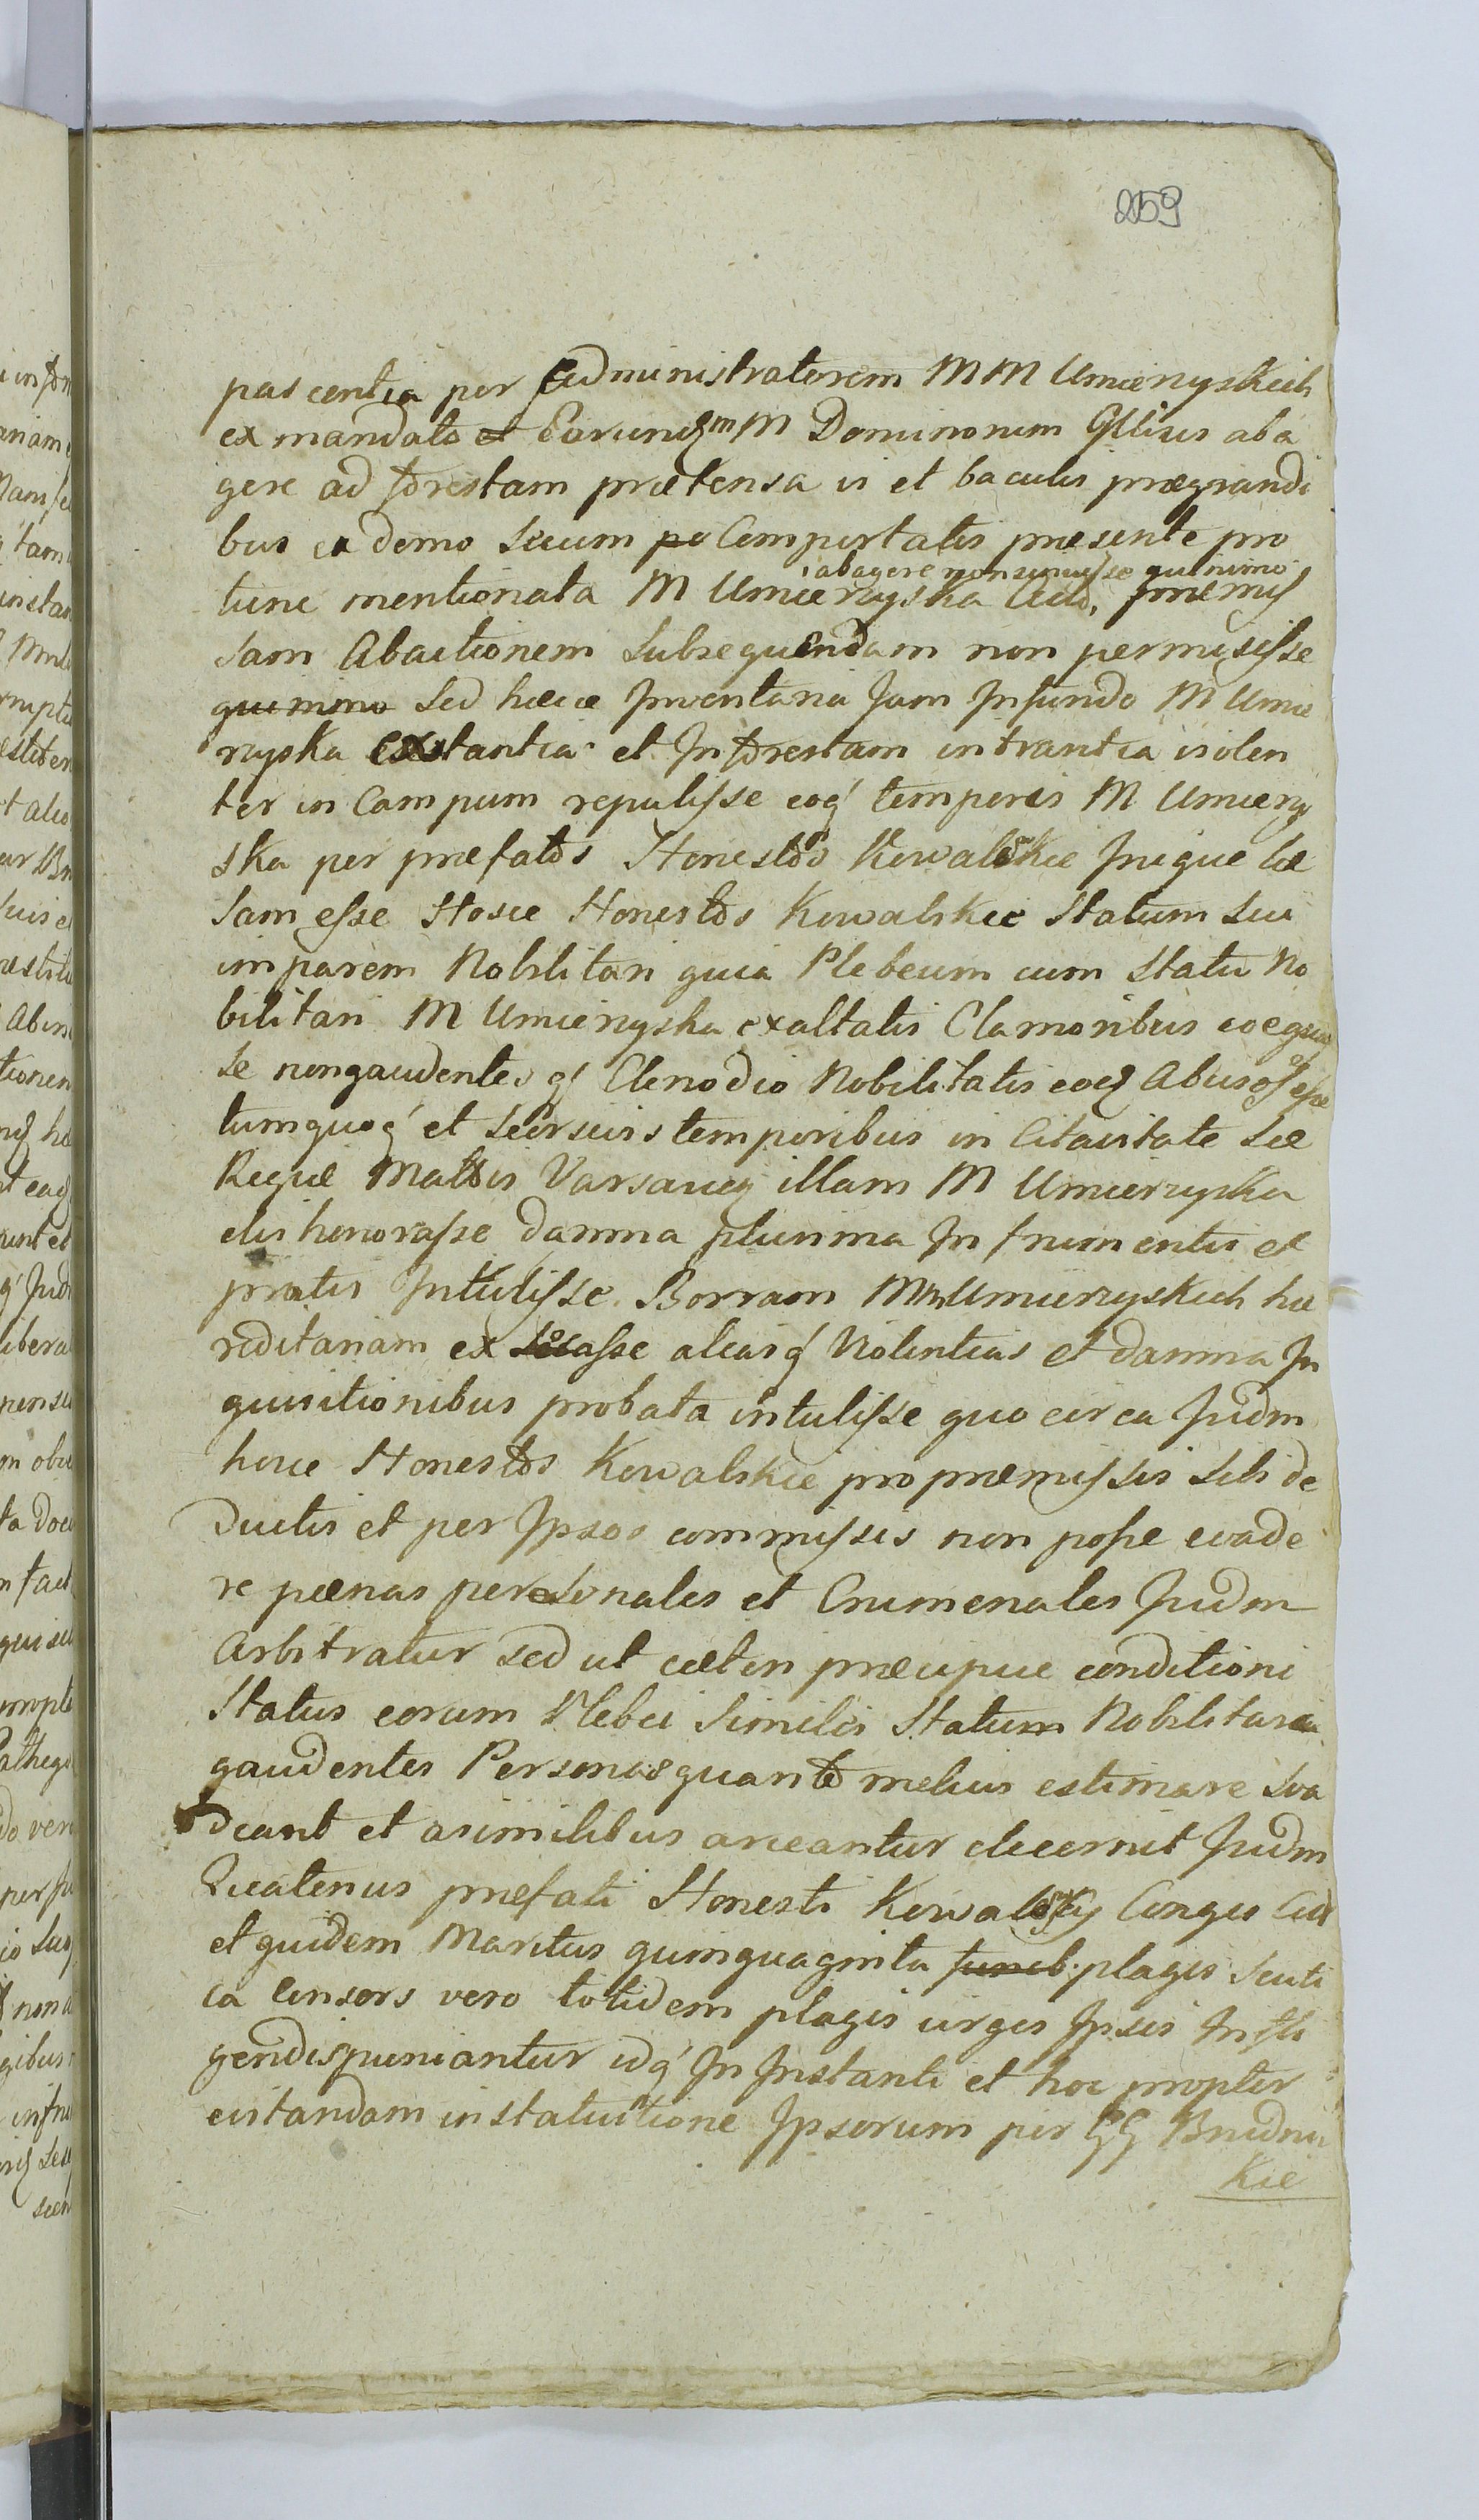 259
pascentia per Administratorem MM Umienyskich
ex mandato Earundm M Dominorum
gere ad forestam prætensa vi et baculis prægrandi
bus ex domo secum Comportatis præsente pro
abagere non sivisse quinimo
tunc mentionata M Umienyska præmis
sam Abactionem subsequendam non permisisse
quinimo sed hæce Inventaria Jam In fundo M Umie
nyska extantia et In forestam intrantia violen
ter in Campum repulisse eoq temporis M Umieny
ska per præfatos Honestos Kowalskie Inique læ
sam esse Hosce Honestos Kowalskie Statum sui
imparem Nobilitari quia Plebeum cum Statu No
bilitari M Umienyska exaltatis Clamoribus coæquas
se non gaudentes Clenodio Nobilitatis Abusos esse
tumquoq et seorsivis temporibus in Citavitate Sæ
Regiæ Mattis Varsavien illam M Umierzyska
dishonorasse damna plurima In frumentis et
pratis Intulisse Borram MM Umierzyskich hæ
reditariam ex aliasq Violentias et damna In
quisitionibus probata intulisse quo circa Judm
hocce Honestos Kowalskie pro præmissis sibi de
ductis et per Ipsos commissis non posse evade
re pænas personales et Crumenales Judm
Arbitratur sed ut cæteri præcipue conditioni
Status eorum Plebei similes Statum Nobilitarem
gaudentes Personas quanto melius estimare sva
deant et a similibus arceantur decernit Judm
Quatenus præfati Honesti Kowalscy Conges
et quidem Maritus quinquaginta plagis scuti
ca Consors vero totidem plagis virges Ipsis Infli
gendis puniantur idq In Instanti et hoc propter
evitandam in statuitione Ipsorum per GG Brudnic
kie